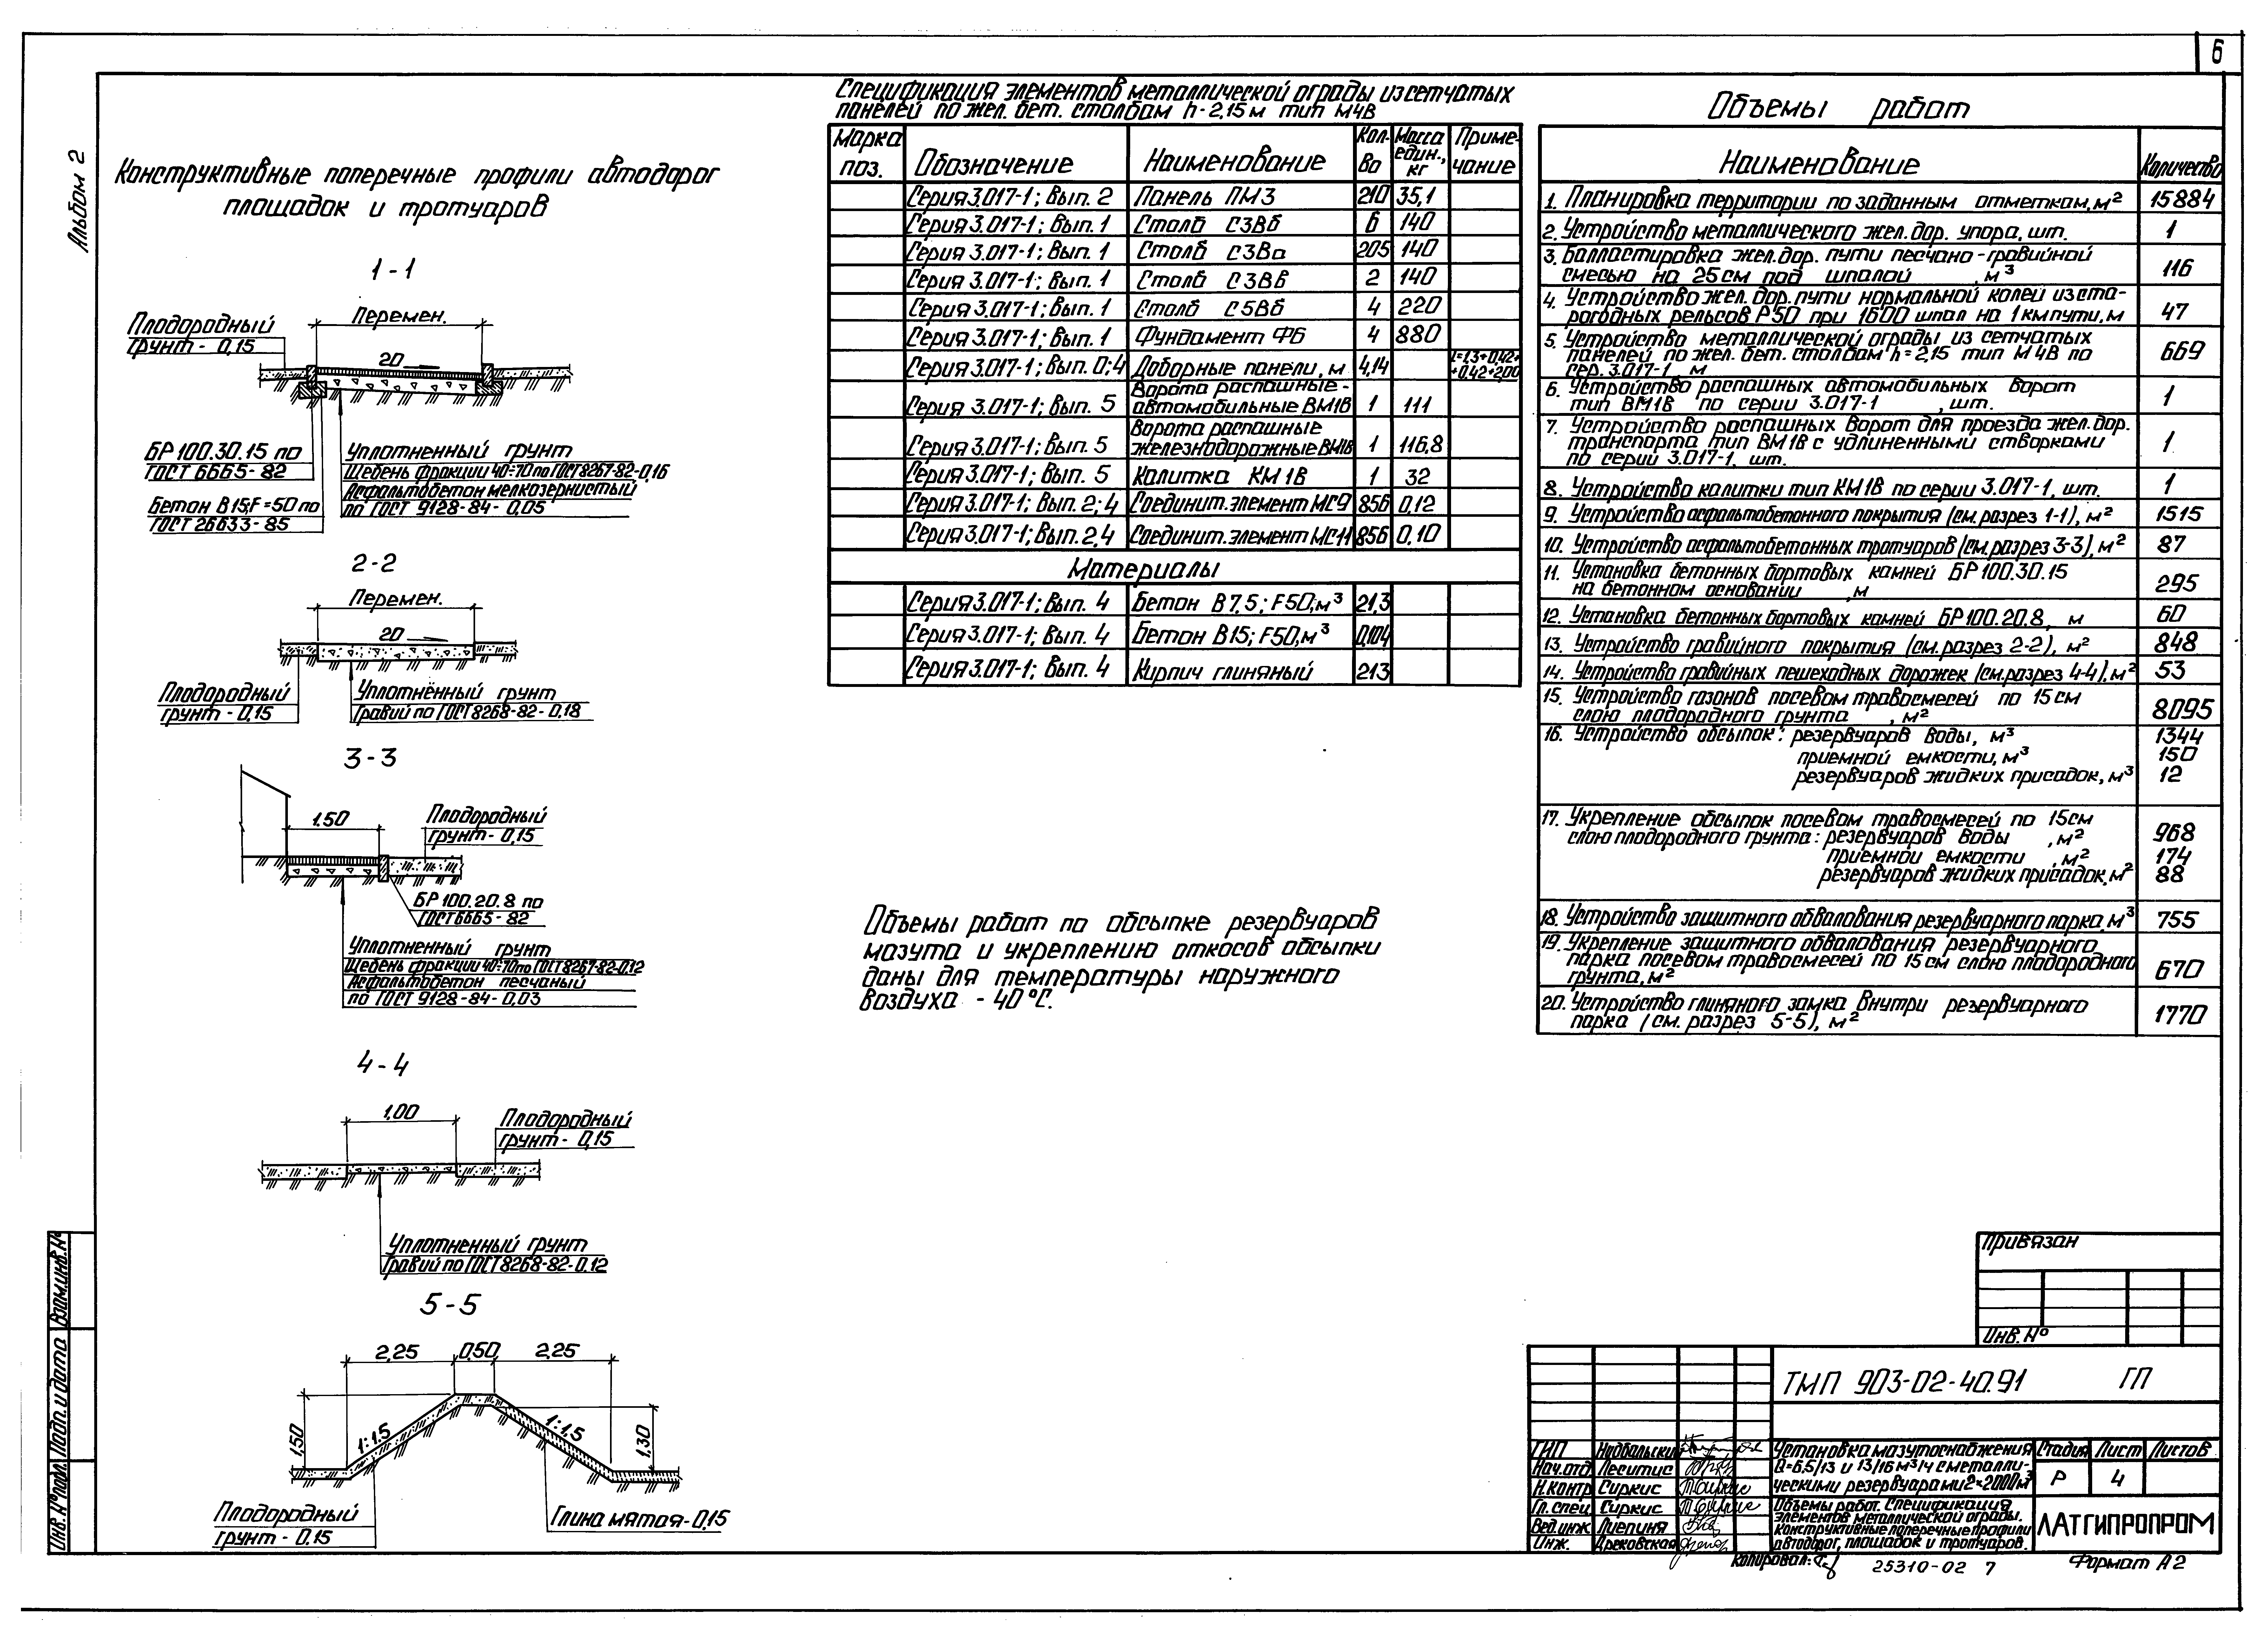 6
Альбом 2
Конструктивные поперечные профили автодорог
площадок и тротуаров
1-1
Перемен.
Плодородный
грунт - 0,15
20
БР 100.30.15 по
ГОСТ 6665-82
Бетон В15; F=50 по
ГОСТ 26633-85
Уплотненный грунт
Щебень фракции 40÷70 по ГОСТ 8267-82-0,16
Асфальтобетон мелкозернистый
по ГОСТ 9128-84-0,05
2-2
Перемен.
20
Плодородный
грунт - 0,15
Уплотнённый грунт
Гравий по ГОСТ 8268-82-0,18
3-3
1.50
Плодородный
грунт - 0,15
БР 100.20.8 по
ГОСТ 6665-82
Уплотненный грунт
Щебень фракции 40÷70 по ГОСТ 8267-82-0,12
Асфальтобетон песчаный
по ГОСТ 9128-84-0,03
4-4
1,00
Плодородный
грунт - 0,15
Уплотненный грунт
Гравий по ГОСТ 8268-82-0,12
5-5
2,25 0,50 2,25
1,50 1:1,5 1:1,5 1,30
Плодородный
грунт - 0,15
Глина мятая - 0,15
Спецификация элементов металлической ограды из сетчатых
панелей по жел. бет. столбам h-2,15 м тип М4В
Марка поз. Обозначение Наименование Кол-во Масса един., кг Примечание
Серия 3.017-1; Вып. 2 Панель ПМ3 210 35,1
Серия 3.017-1; Вып. 1 Столб С3Вб 6 140
Серия 3.017-1; Вып. 1 Столб С3Ва 205 140
Серия 3.017-1; Вып. 1 Столб С3Вв 2 140
Серия 3.017-1; Вып. 1 Столб С5Вб 4 220
Серия 3.017-1; Вып. 1 Фундамент Ф6 4 880
Серия 3.017-1; Вып. 0; 4 Доборные панели, м 4,14 L=1,3+0,42+
+0,42+2,00
Ворота распашные -
Серия 3.017-1; Вып. 5 автомобильные ВМ1В 1 111
Ворота распашные
Серия 3.017-1; Вып. 5 железнодорожные ВМ1В 1 116,8
Серия 3.017-1; Вып. 5 Калитка КМ1В 1 32
Серия 3.017-1; Вып. 2; 4 Соединит. элемент МС9 856 0,12
Серия 3.017-1; Вып. 2,4 Соединит. элемент МС11 856 0,10
Материалы
Серия 3.017-1; Вып. 4 Бетон В7,5; F50, м³ 21,3
Серия 3.017-1; Вып. 4 Бетон В15; F50, м³ 0,104
Серия 3.017-1; Вып. 4 Кирпич глиняный 213
Объемы работ по обсыпке резервуаров
мазута и укреплению откосов обсыпки
даны для температуры наружного
воздуха - 40°С.
Объемы работ
Наименование Количество
1. Планировка территории по заданным отметкам, м² 15884
2. Устройство металлического жел. дор. упора, шт. 1
3. Балластировка жел. дор. пути песчано-гравийной
смесью на 25 см под шпалой , м³ 116
4. Устройство жел. дор. пути нормальной колеи из ста-
рогодных рельсов Р50 при 1600 шпал на 1 км пути, м 47
5. Устройство металлической ограды из сетчатых
панелей по жел. бет. столбам h=2,15 тип М4В по
сер. 3.017-1, м 669
6. Устройство распашных автомобильных ворот
тип ВМ1В по серии 3.017-1 , шт. 1
7. Устройство распашных ворот для проезда жел. дор.
транспорта тип ВМ1В с удлиненными створками
по серии 3.017-1, шт. 1
8. Устройство калитки тип КМ1В по серии 3.017-1, шт. 1
9. Устройство асфальтобетонного покрытия (см. разрез 1-1), м² 1515
10. Устройство асфальтобетонных тротуаров (см. разрез 3-3), м² 87
11. Установка бетонных бортовых камней БР 100.30.15
на бетонном основании , м 295
12. Установка бетонных бортовых камней БР 100.20.8, м 60
13. Устройство гравийного покрытия (см. разрез 2-2), м² 848
14. Устройство гравийных пешеходных дорожек (см. разрез 4-4), м² 53
15. Устройство газонов посевом травосмесей по 15 см
слою плодородного грунта , м² 8095
16. Устройство обсыпок: резервуаров воды, м³ 1344
приемной емкости, м³ 150
резервуаров жидких присадок, м³ 12
17. Укрепление обсыпок посевом травосмесей по 15см
слою плодородного грунта: резервуаров воды , м² 968
приемной емкости , м² 174
резервуаров жидких присадок, м² 88
18. Устройство защитного обвалования резервуарного парка, м³ 755
19. Укрепление защитного обвалования резервуарного
парка посевом травосмесей по 15 см слою плодородного
грунта, м² 670
20. Устройство глиняного замка внутри резервуарного
парка (см. разрез 5-5), м² 1770
Привязан
Инв. №
ТМП 903-02-40.91 ГП
ГИП Нидбальский
Нач. отд. Леситис
Н. контр Сиркис
Гл. спец. Сиркис
Вед. инж. Лиепиня
Инж. Дрековская
Установка мазутоснабжения
Q=6,5/13 и 13/16 м³/ч с металли-
ческими резервуарами 2×2000м³
Стадия Лист Листов
Р 4
Объемы работ. Спецификация
элементов металлической ограды.
Конструктивные поперечные профили
автодорог, площадок и тротуаров.
ЛАТГИПРОПРОМ
Копировал:
25310-02 7
Формат А2
Взам. инв. №
Подп. и дата
Инв. № подл.